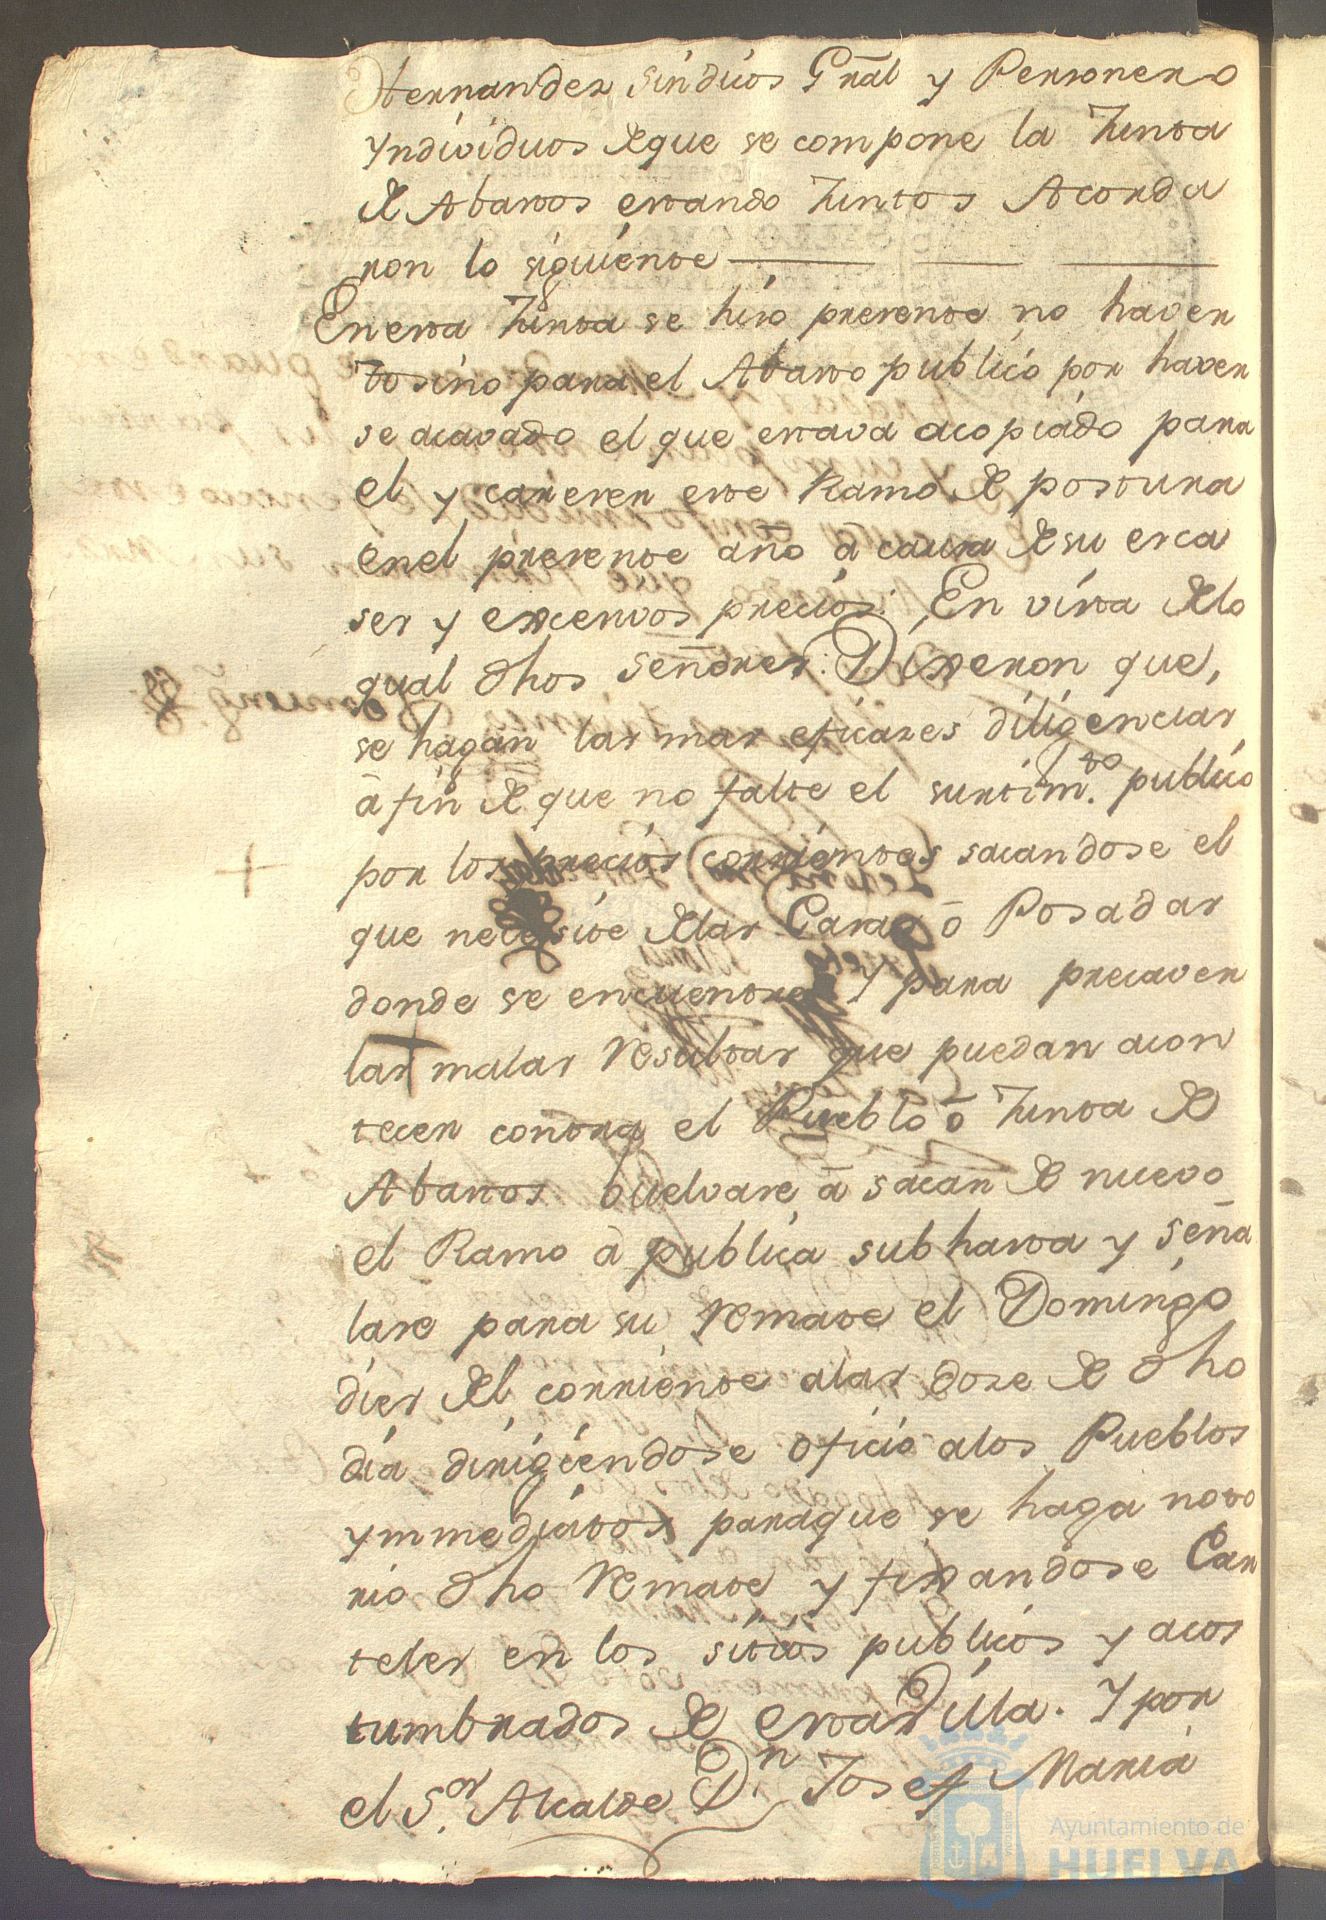 Hernandez Sindicos Gñal y Personero
Yndividuos de que se compone la Junta
de Abastos estando Juntos Acorda
ron lo siguiente
En esta Junta se hizo presente no haver
tosino para el Abasto publico por haver
se acavado el que estava acopiado para
el y careser este Ramo de postura
enel presente año â causa de su esca
ses y excesivos precios: En vista delo
qual dhos Señores: Dixeron que,
se hagan las mas eficases diligencias
â fin de que no falte el surtim.to publico
por los precios corrientes sacandose el
que necesite delas Casas ô Posadas
donde se encuentre Y para precaver
las malas resultas que puedan acon
tecer contra el Pueblo ô Junta de
Abastos buelvase â sacar de nuevo
el Ramo â publica subhasta y seña
lase para su remate el Domingo
dies del corriente alas dose de dho
dia dirigiendose oficio alos Pueblos
ymmediatos paraque se haga noto
rio dho remate y fixandose Car
teles en los sitios publicos y acos
tumbrados de esta Villa. Y por
el S.or Alcalde D.n Josef Maria
Ayuntamiento de
HUELVA